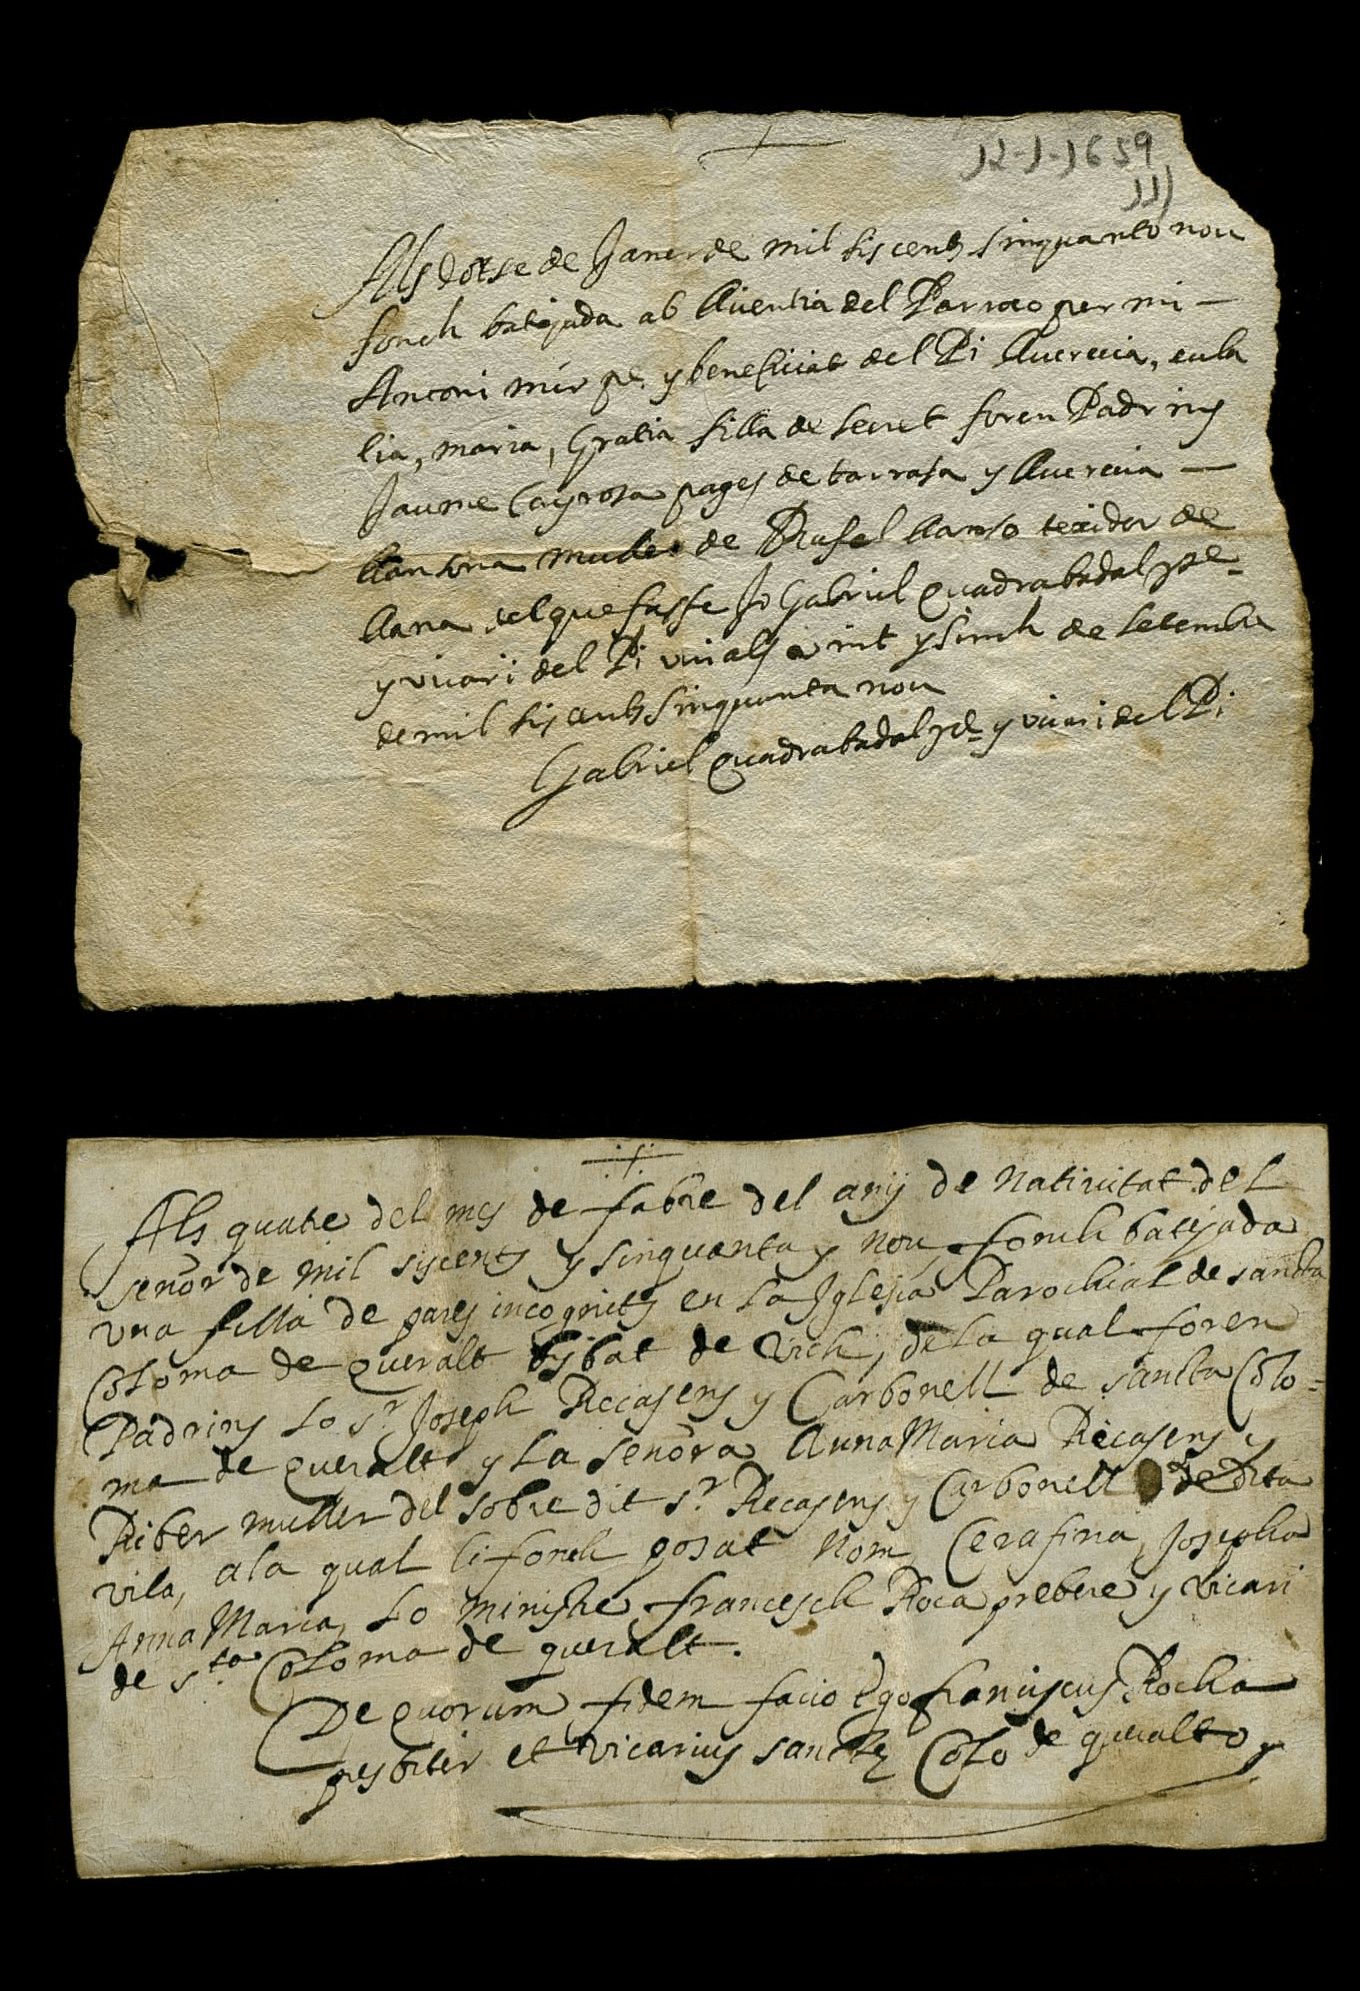 12-1-1659
11)
Als dotse de Janer de mil siscents sinquanto nou
fonch batejada ab llicentia del Parroco per mi
Antoni mir pe. y beneficiat del Pi llucrecia, eula
lia, maria, Gratia filla de secret foren Padrins
Jaume Cayrosa pages de tarrasa y llucrecia
muller de Rafel texidor de
llana del que fas fe Jo Gabriel Quadrabadal pre.
y vicari del Pi vui als vint y sinch de setembre
de mil siscents sinquanta nou
Gabriel Quadrabadal pre. y vicari del Pi
Als quatre del mes de fabre del any de Nativitat del
señor de mil siscents y sinquanta y nou fonch batejada
vna filla de pares incognits en la Iglesia Parochial de sancta
Coloma de queralt bisbat de Vich, de la qual foren
Padrins Lo sr Joseph Recasens y Carbonell de sancta Colo=
ma de queralt y La señora Anna Maria Recasens y
Riber muller del sobre dit sr Recasens y Carbonell de dita
vila, a la qual li fonch posat nom Cerafina, Josepha
Anna Maria, Lo ministre francesch Roca prebere y vicari
de sta Coloma de queralt.
De quorum fidem facio Ego franciscus Rocha
presbiter et vicarius sancte Colo de queralto